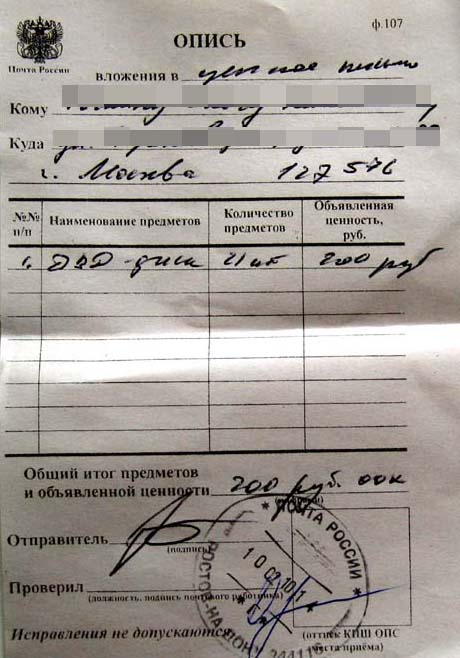 ф.107
Почта России
ОПИСЬ
вложения в ценное письмо
Кому
Куда
г. Москва 127576
№№ п/п Наименование предметов Количество предметов Объявленная ценность, руб.
1. DVD-диск 1 шт 200 руб
Общий итог предметов
и объявленной ценности 200 руб. 00к
Отправитель
(подпись)
Проверил
(должность, подпись почтового работника)
Исправления не допускаются
(оттиск КПШ ОПС
места приёма)
ПОЧТА РОССИИ
РОСТОВ-НА-ДОНУ